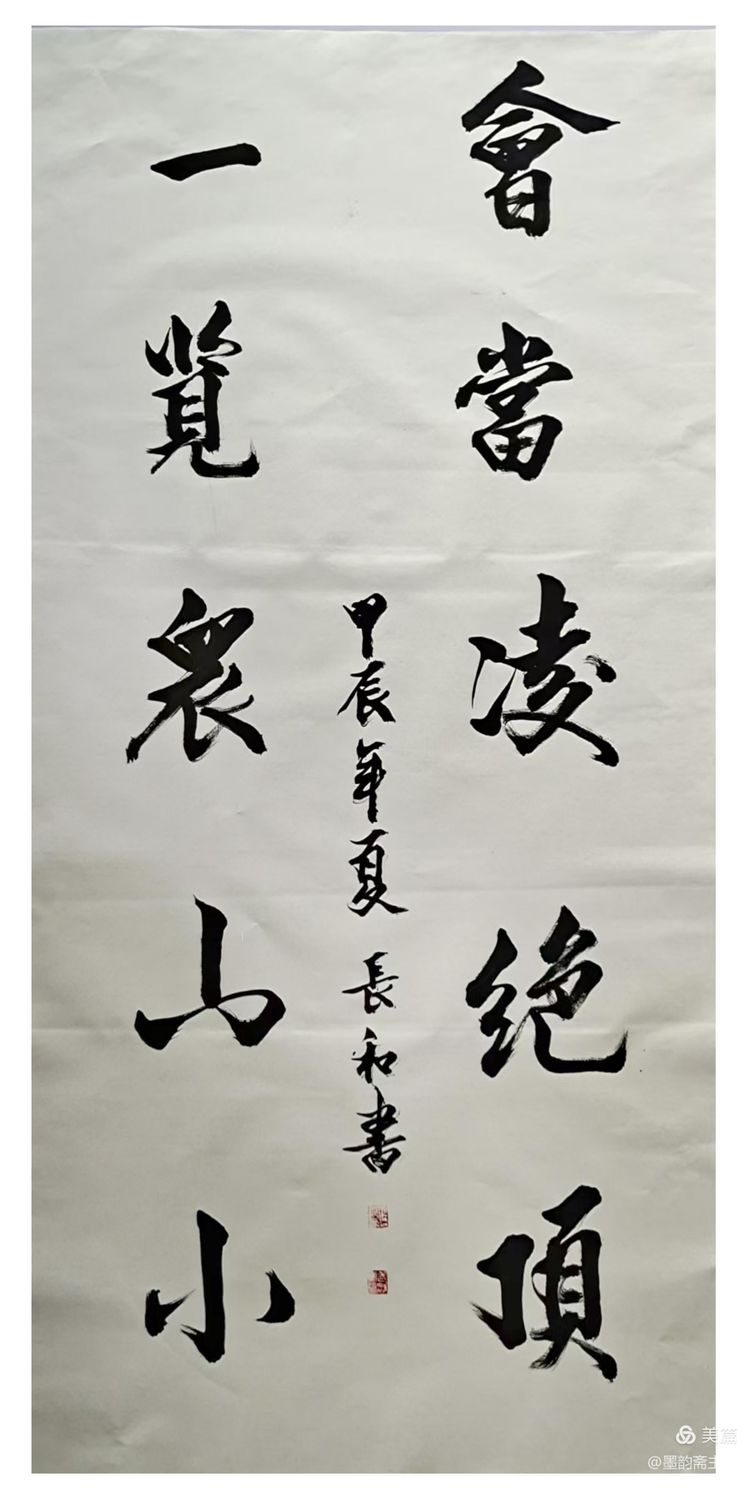 會當凌絕頂
一覧衆山小
甲辰年夏 長和書
美篇
@墨韵斋主